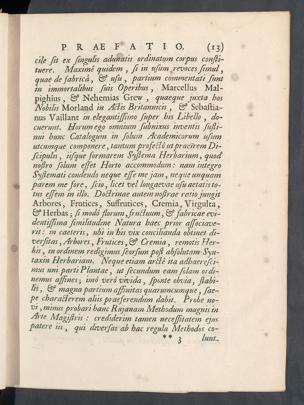 PRÆFATIO. (13)
cile sit ex singulis adunatis ordinatum corpus consti-
tuere. Maximé quidem, si in usum revoces simul,
quae de fabricâ, & usu, partium commentati sunt
in immortalibus suis Operibus, Marcellus Mal-
pighius, & Nehemias Grew, quaeque juxta hos
Nobilis Morland in Actis Britannicis, & Sebastia-
nus Vaillant in elegantissimo super his Libello, do-
cuerunt. Horum ego omnium subnixus inventis susti-
nui hunc Catalogum in solum Academicorum usum
utcunque componere, tantum profectò ut pracirem Di-
scipulis, isque formarem Systema Herbarium, quod
nostro solum esset Horto accommodum: nam integro
Systemati condendo neque esse me jam, neque unquam
parem me fore, scio, licet vel longaevae usu aetatis to-
tus essem in illo. Doctrinae autem nostrae ratio jungit
Arbores, Frutices, Suffrutices, Cremia, Virgulta,
& Herbas; si modò florum, fructuum, & fabricae evi-
dentissima similitudine Natura haec prior associave-
rit: in caeteris, ubi in his vix concilianda obtinet di-
versitas, Arbores, Frutices, & Cremia, remotis Her-
bis, in ordinem redigimus seorsum post absolutam Syn-
taxin Herbariam. Neque etiam arctè ita adhaeresci-
mus uni parti Plantae, ut secundum eam solam ordi-
nemus affines; imò verò vivida, sponte obvia, stabi-
lis, & magna partium affinitas quarumcunque, sae-
pe characterem aliis praeferendum dabit. Probe no-
vi, minus probari hanc Rajanam Methodum magnis in
Arte Magistris: crediderim tamen necessitatem ejus
patere iis, qui diversas ab hac regula Methodos co-
** 3 lunt.